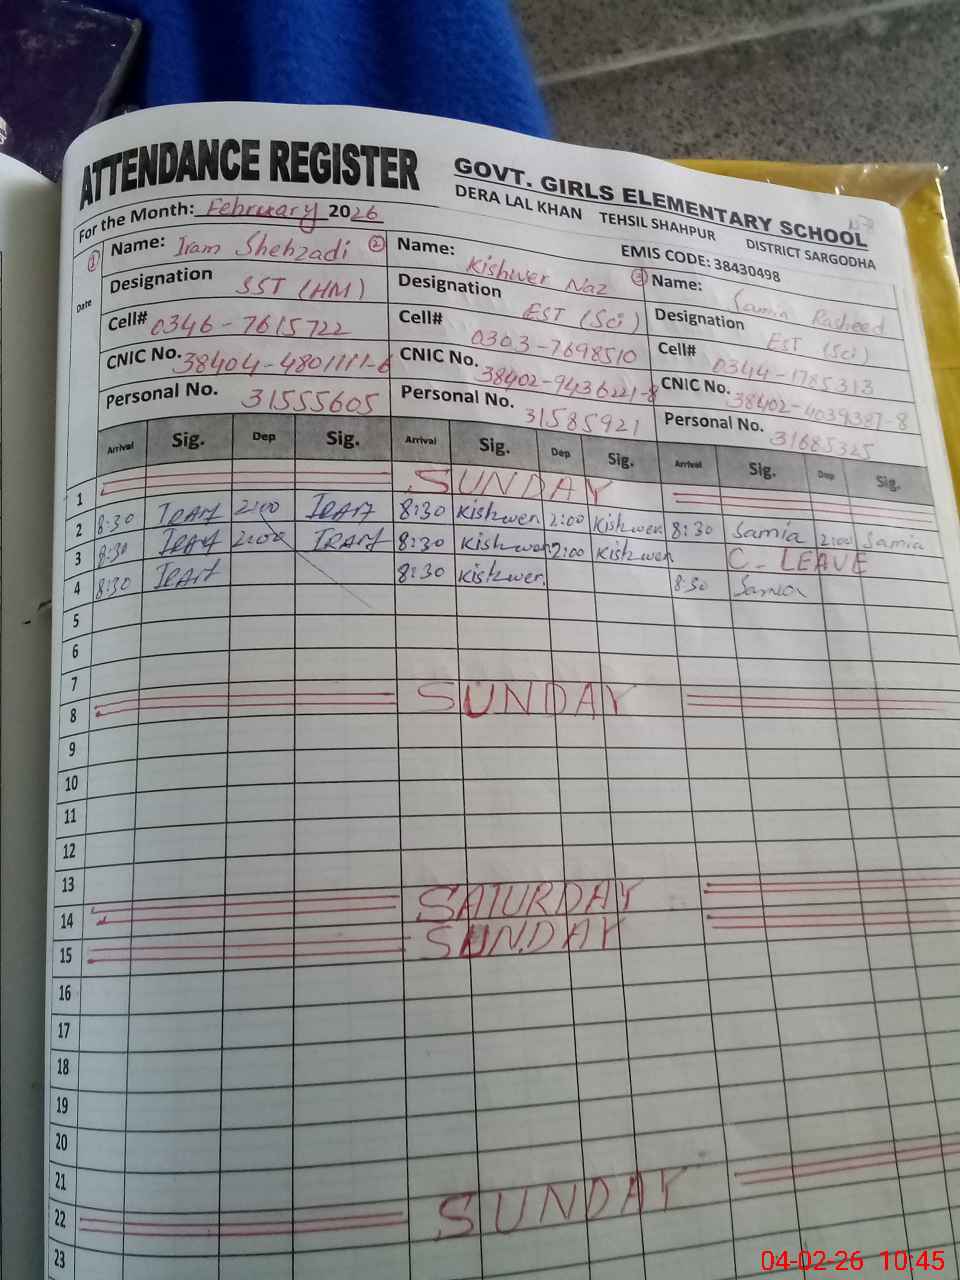 ATTENDANCE REGISTER
GOVT. GIRLS ELEMENTARY SCHOOL
DERA LAL KHAN TEHSIL SHAHPUR DISTRICT SARGODHA
For the Month: February 2026
EMIS CODE: 38430498
Date
① Name: Iram Shehzadi ② Name: Kishwer Naz ③ Name: Samia Rasheed
Designation SST (HM) Designation EST (Sci) Designation EST (Sci)
Cell# 0346-7615722 Cell# 0303-7698510 Cell# 0344-1785313
CNIC No. 38404-4801111-6 CNIC No. 38402-9436221-8 CNIC No. 38402-4039387-8
Personal No. 31555605 Personal No. 31585921 Personal No. 31685325
Arrival Sig. Dep Sig. Arrival Sig. Dep Sig. Arrival Sig. Dep Sig.
1 SUNDAY
2 8:30 IRAM 2:00 IRAM 8:30 Kishwer 2:00 Kishwer 8:30 Samia 2:00 Samia
3 8:30 IRAM 2:00 IRAM 8:30 Kishwer 2:00 Kishwer C. LEAVE
4 8:30 IRAM 8:30 Kishwer. 8:30 Samia
5
6
7
8 SUNDAY
9
10
11
12
13
14 SATURDAY
15 SUNDAY
16
17
18
19
20
21
22 SUNDAY
23
04-02-26 10:45